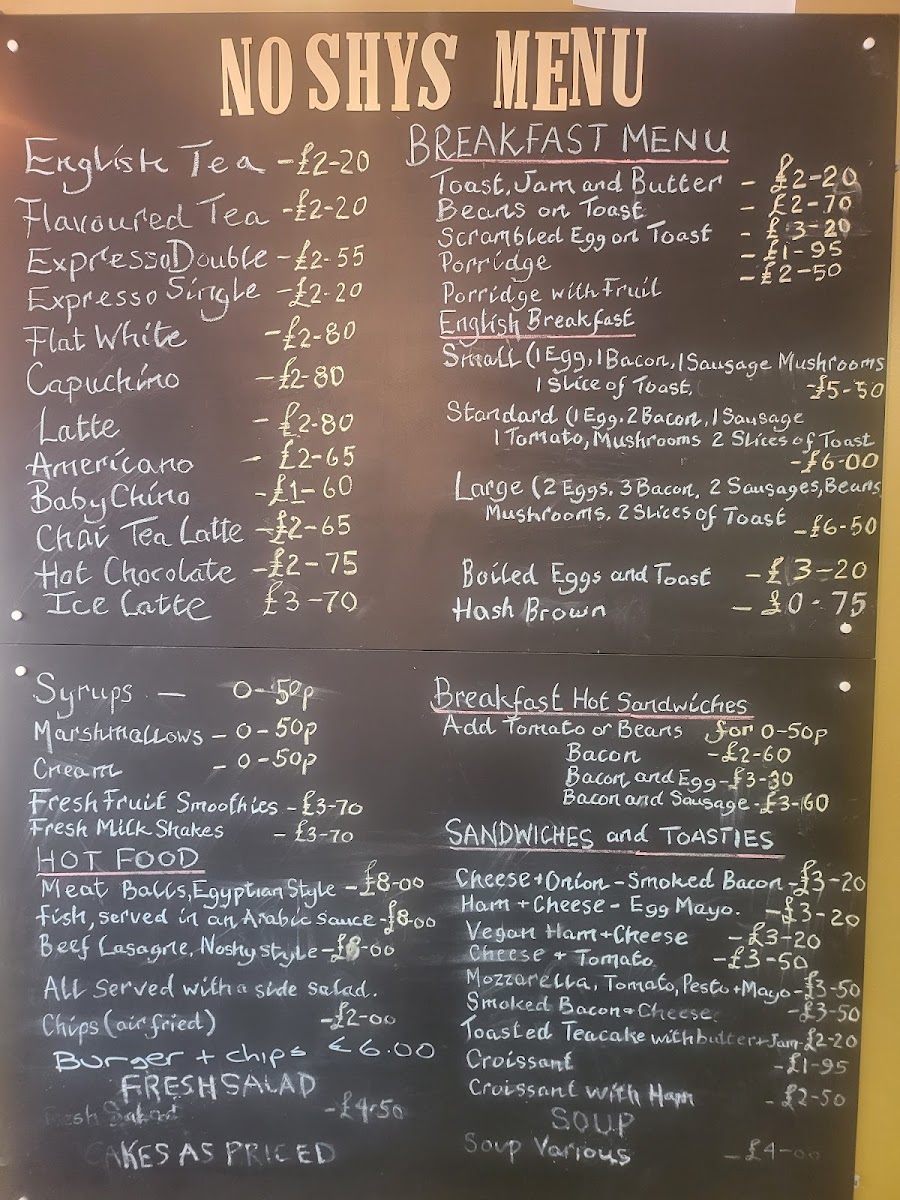 NOSHYS MENU
English Tea - £2-20
Flavoured Tea - £2-20
Expresso Double - £2-55
Expresso Single - £2-20
Flat White - £2-80
Capuchino - £2-80
Latte - £2-80
Americano - £2-65
Baby Chino - £1-60
Chai Tea Latte - £2-65
Hot Chocolate - £2-75
Ice Latte £3-70
BREAKFAST MENU
Toast, Jam and Butter - £2-20
Beans on Toast - £2-70
Scrambled Egg on Toast - £3-20
Porridge - £1-95
Porridge with Fruit - £2-50
English Breakfast
Small (1 Egg, 1 Bacon, 1 Sausage Mushrooms
1 Slice of Toast, - £5-50
Standard (1 Egg. 2 Bacon, 1 Sausage
1 Tomato, Mushrooms 2 Slices of Toast
- £6-00
Large (2 Eggs. 3 Bacon, 2 Sausages, Beans
Mushrooms. 2 Slices of Toast - £6-50
Boiled Eggs and Toast - £3-20
Hash Brown - £0-75
Syrups - 0-50p
Marshmallows - 0-50p
Cream - 0-50p
Fresh Fruit Smoothies - £3-70
Fresh Milk Shakes - £3-70
HOT FOOD
Meat Balls, Egyptian Style - £8-00
Fish, served in an Arabic Sauce - £8-00
Beef Lasagne, Noshy Style - £8-00
All Served with a side salad.
Chips (air fried) - £2-00
Burger + chips £6.00
FRESH SALAD
Fresh Salad - £4-50
CAKES AS PRICED
Breakfast Hot Sandwiches
Add Tomato or Beans for 0-50p
Bacon - £2-60
Bacon and Egg - £3-30
Bacon and Sausage - £3-60
SANDWICHES and TOASTIES
Cheese + Onion - Smoked Bacon - £3-20
Ham + Cheese - Egg Mayo. - £3-20
Vegan Ham + Cheese - £3-20
Cheese + Tomato - £3-50
Mozzarella, Tomato, Pesto + Mayo - £3-50
Smoked Bacon + Cheese - £3-50
Toasted Teacake with butter + Jam - £2-20
Croissant - £1-95
Croissant with Ham - £2-50
SOUP
Soup Various - £4-00